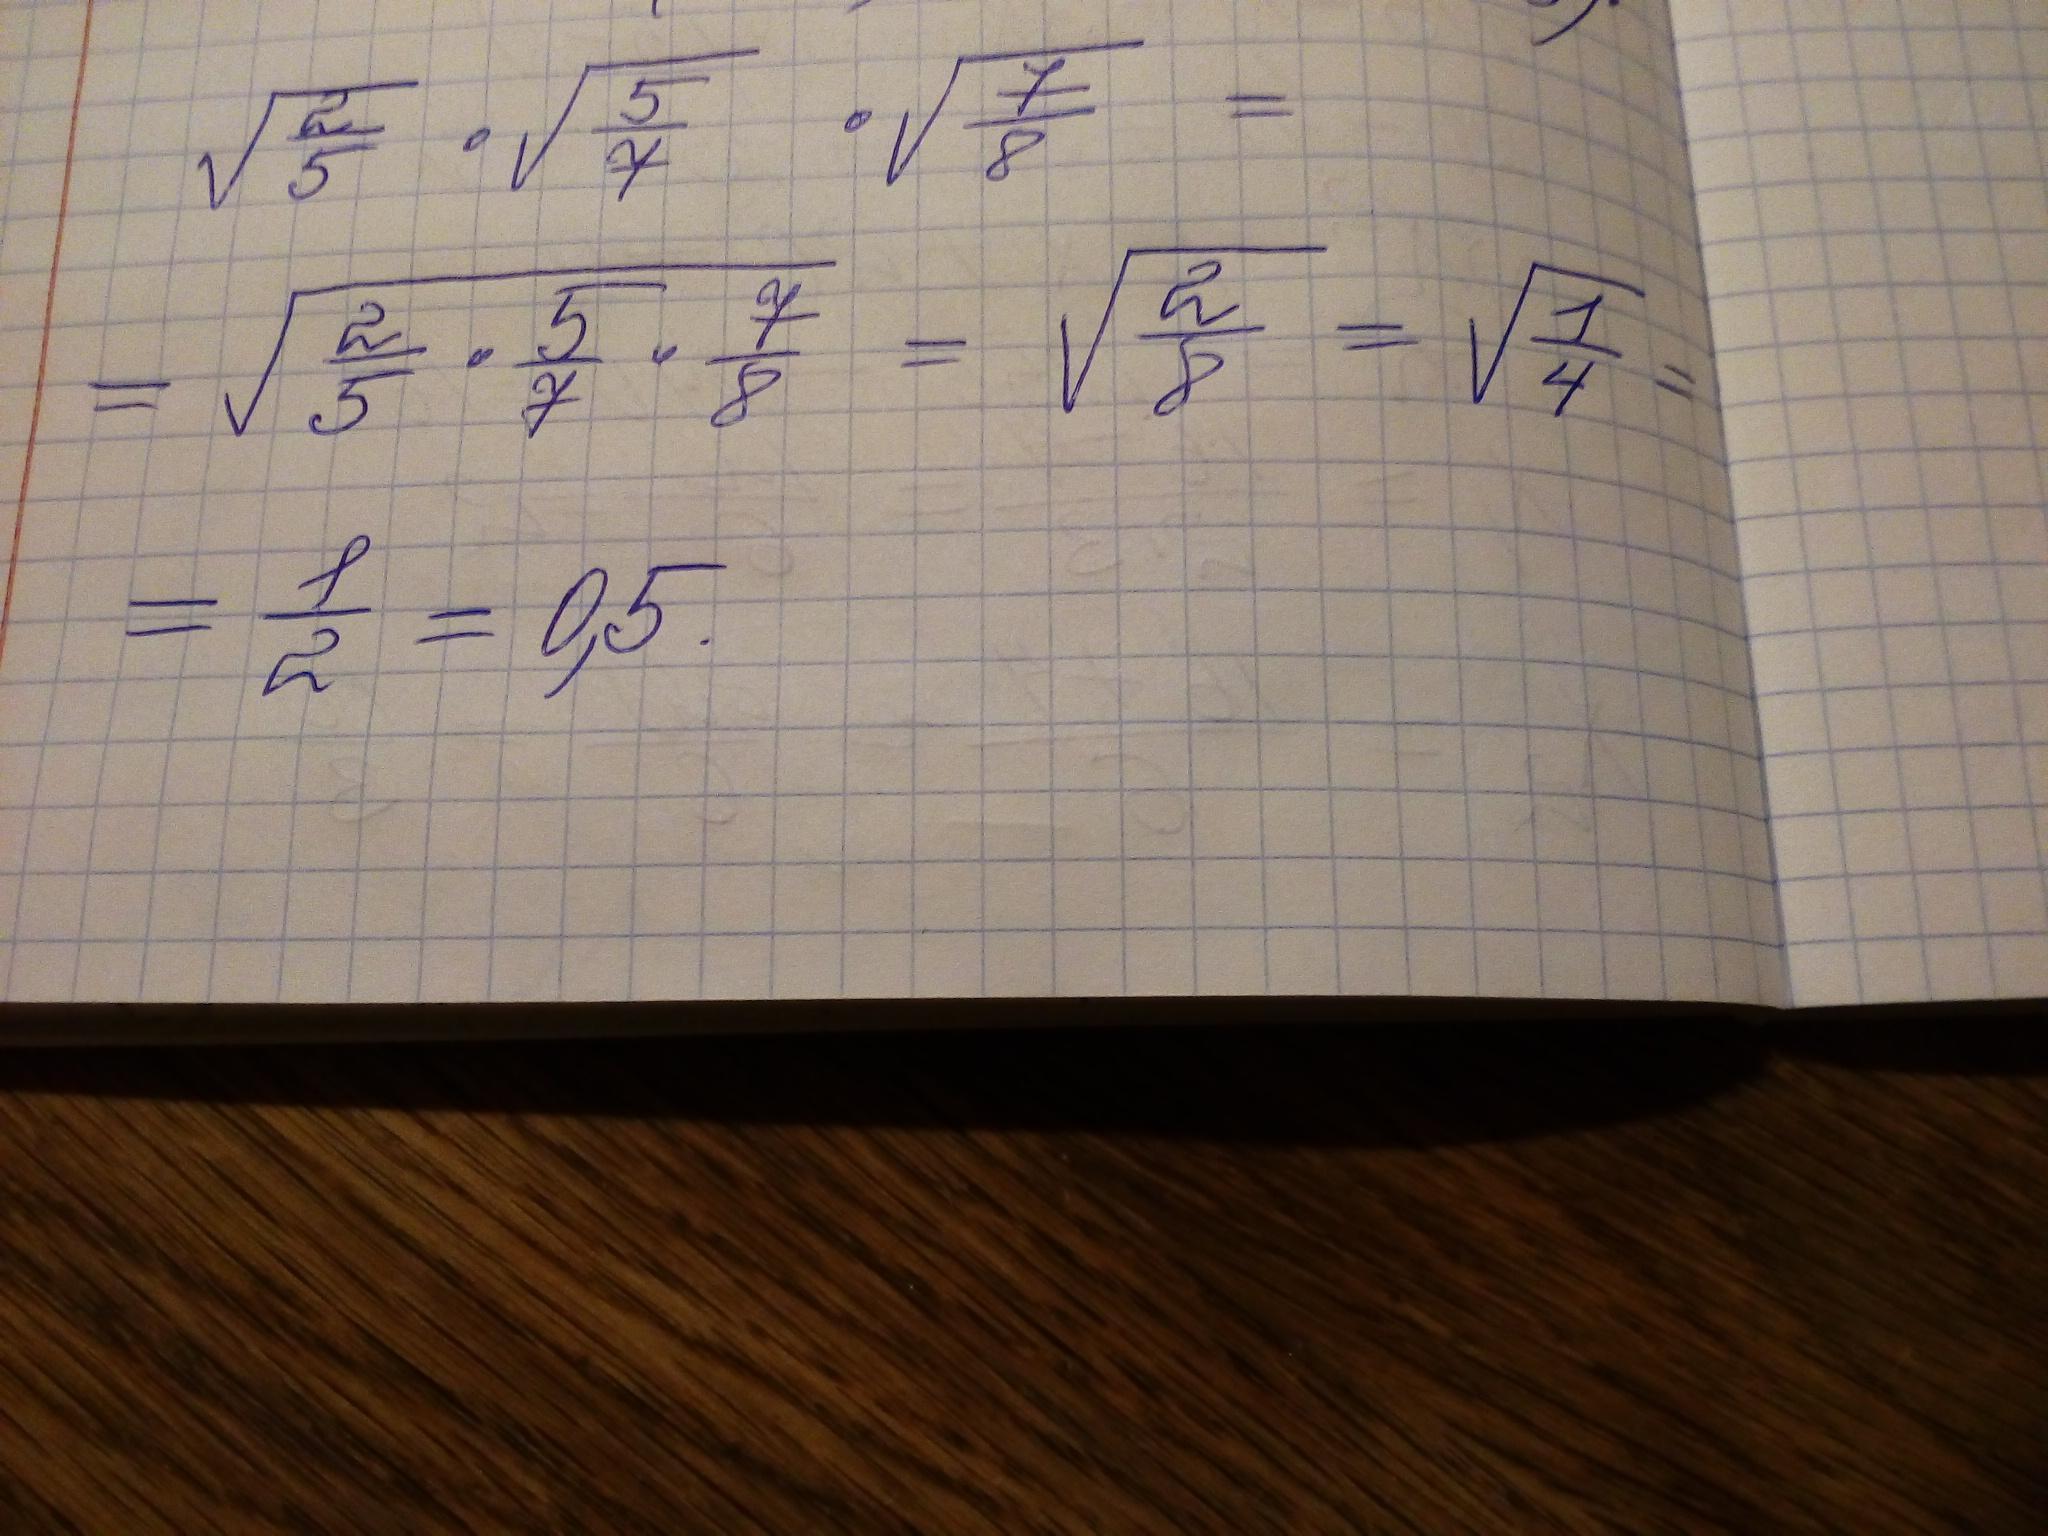 √(2/5) · √(5/7) · √(7/8) =
= √(2/5 · 5/7 · 7/8) = √(2/8) = √(1/4) =
= 1/2 = 0,5.